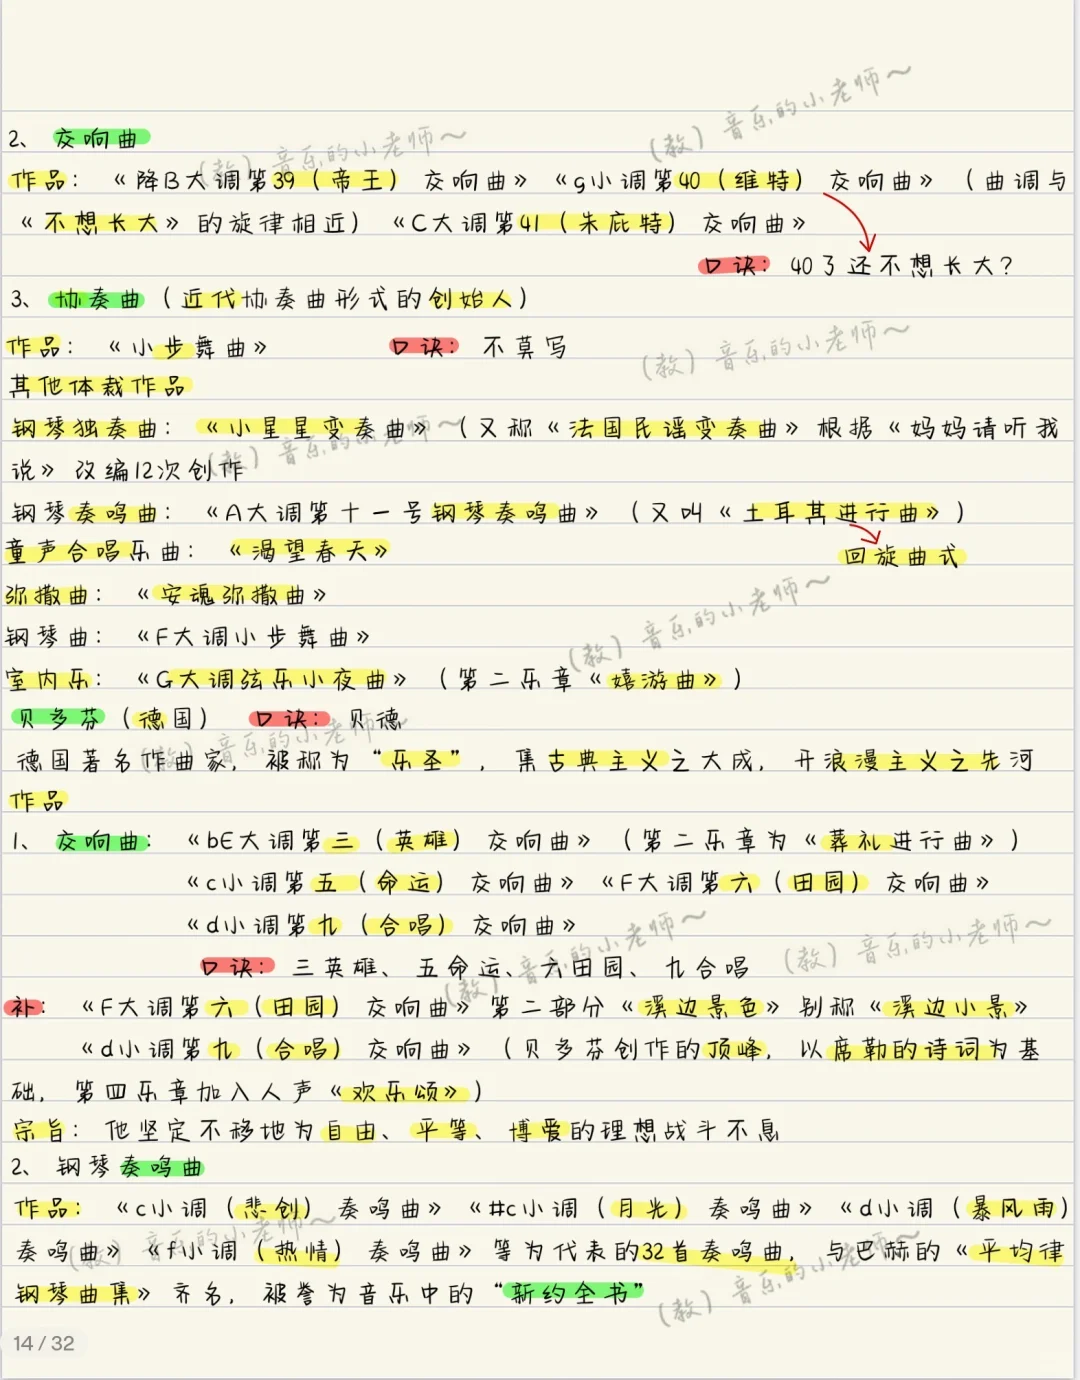 2、 交响曲
作品： 《降B大调第39（帝王） 交响曲》 《g小调第40（维特） 交响曲》 （曲调与
《不想长大》的旋律相近） 《C大调第41（朱庇特） 交响曲》
口诀： 40了还不想长大？
3、 协奏曲（近代协奏曲形式的创始人）
作品： 《小步舞曲》 口诀： 不莫写
其他体裁作品
钢琴独奏曲： 《小星星变奏曲》 （又称《法国民谣变奏曲》根据《妈妈请听我
说》改编12次创作
钢琴奏鸣曲： 《A大调第十一号钢琴奏鸣曲》 （又叫《土耳其进行曲》）
童声合唱乐曲： 《渴望春天》 回旋曲式
弥撒曲： 《安魂弥撒曲》
钢琴曲： 《F大调小步舞曲》
室内乐： 《G大调弦乐小夜曲》 （第二乐章《嬉游曲》）
贝多芬（德国） 口诀： 贝德
德国著名作曲家，被称为“乐圣”，集古典主义之大成，开浪漫主义之先河
作品
1、 交响曲： 《bE大调第三（英雄） 交响曲》 （第二乐章为《葬礼进行曲》）
《c小调第五（命运） 交响曲》 《F大调第六（田园） 交响曲》
《d小调第九（合唱） 交响曲》
口诀： 三英雄、五命运、六田园、九合唱
补： 《F大调第六（田园） 交响曲》第二部分《溪边景色》别称《溪边小景》
《d小调第九（合唱） 交响曲》 （贝多芬创作的顶峰，以席勒的诗词为基
础，第四乐章加入人声《欢乐颂》）
宗旨： 他坚定不移地为自由、平等、博爱的理想战斗不息
2、 钢琴奏鸣曲
作品： 《c小调（悲创） 奏鸣曲》 《#c小调（月光） 奏鸣曲》 《d小调（暴风雨）
奏鸣曲》 《f小调（热情） 奏鸣曲》等为代表的32首奏鸣曲，与巴赫的《平均律
钢琴曲集》齐名，被誉为音乐中的“新约全书”
14 / 32
（教）音乐的小老师～
（教）音乐的小老师～
（教）音乐的小老师～
（教）音乐的小老师～
（教）音乐的小老师～
（教）音乐的小老师～
（教）音乐的小老师～
（教）音乐的小老师～
（教）音乐的小老师～
（教）音乐的小老师～